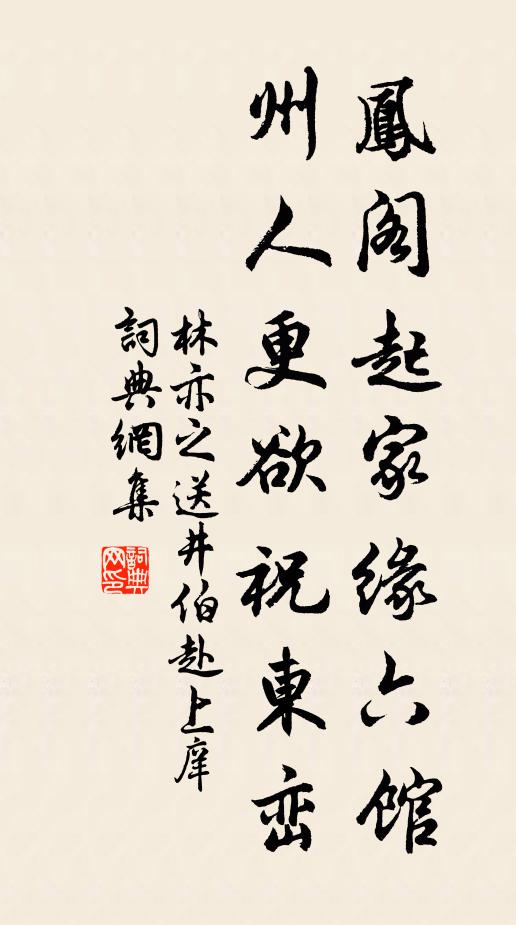 鳳阁起家缘六館
州人更欲祝東峦
林亦之送井伯赴上庠
詞典網集
詞典网印